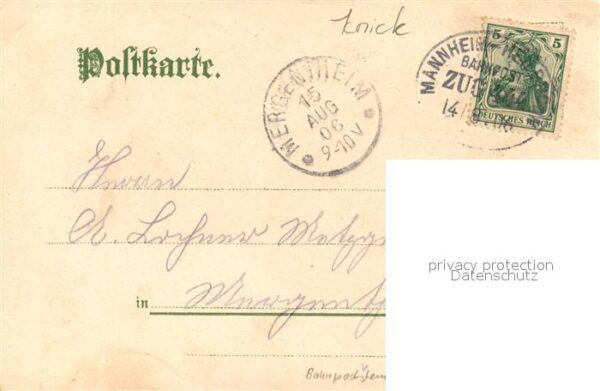 knick
Postkarte.
MERGENTHEIM
15
AUG
06
9-10V
MANNHEIM
BAHNPOST
ZUG
14
5 5
DEUTSCHES REICH
Herrn
A. Lochner Metzge
in Mergenth
privacy protection
Datenschutz
Bahnpoststem